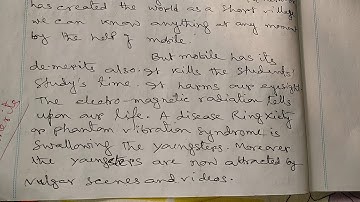 has created the world as a short village
we can know anything at any moment
by the help of mobile.
But mobile has its
de-merits also. It kills the students'
study's time. It harms our eyesight.
The electro-magnetic radiation tells
upon our life. A disease Ringxiety
or phantom vibration Syndrome is
swallowing the youngsters. Moreover
the youngsters are now attracted by
vulgar scenes and videos.